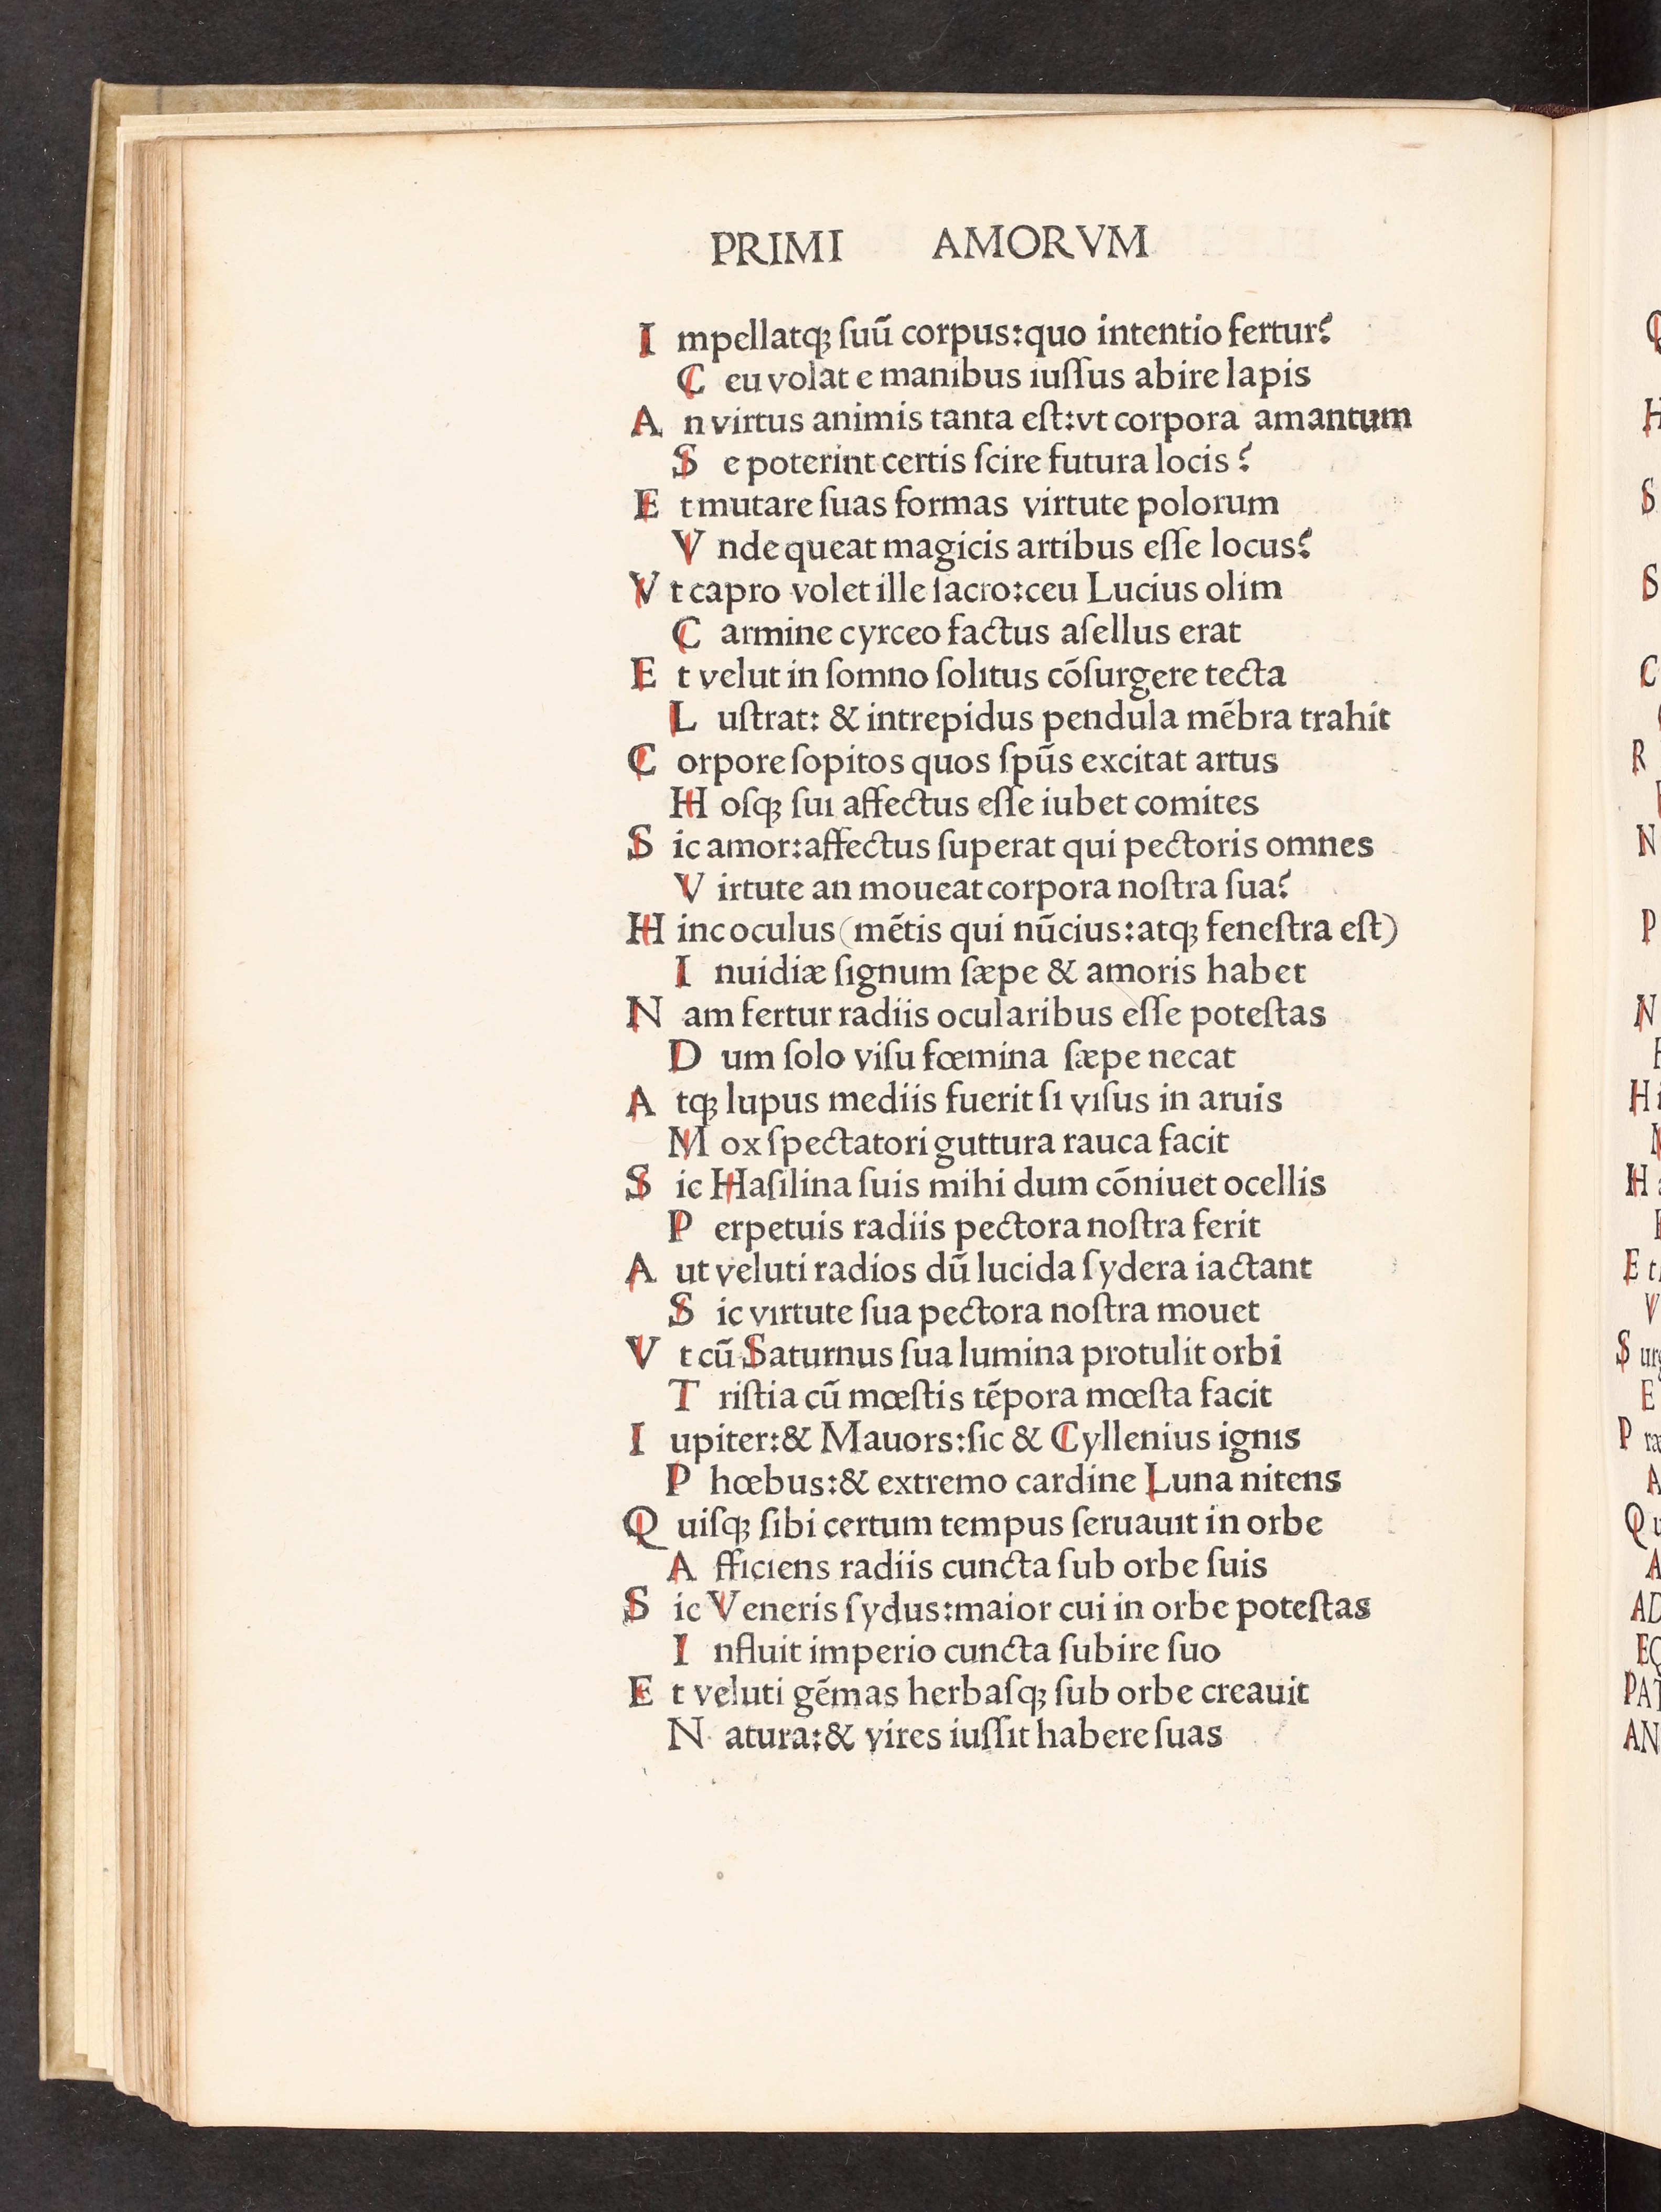 PRIMI AMORVM
I mpellatqꝫ ſuū corpus:quo intentio fertur?
C eu volat e manibus iuſſus abire lapis
A n virtus animis tanta eſt:vt corpora amantum
S e poterint certis ſcire futura locis?
E t mutare ſuas formas virtute polorum
V nde queat magicis artibus eſſe locus?
V t capro volet ille ſacro:ceu Lucius olim
C armine cyrceo factus aſellus erat
E t velut in ſomno ſolitus cōſurgere tecta
L uſtrat: & intrepidus pendula mēbra trahit
C orpore ſopitos quos ſpūs excitat artus
H oſqꝫ ſui affectus eſſe iubet comites
S ic amor:affectus ſuperat qui pectoris omnes
V irtute an moueat corpora noſtra ſua?
H inc oculus (mētis qui nūcius:atqꝫ feneſtra eſt)
I nuidiæ ſignum ſæpe & amoris habet
N am fertur radiis ocularibus eſſe poteſtas
D um ſolo viſu fœmina ſæpe necat
A tqꝫ lupus mediis fuerit ſi viſus in aruis
M ox ſpectatori guttura rauca facit
S ic Haſilina ſuis mihi dum cōniuet ocellis
P erpetuis radiis pectora noſtra ferit
A ut veluti radios dū lucida ſydera iactant
S ic virtute ſua pectora noſtra mouet
V t cū Saturnus ſua lumina protulit orbi
T riſtia cū mœſtis tēpora mœſta facit
I upiter:& Mauors:ſic & Cyllenius ignis
P hœbus:& extremo cardine Luna nitens
Q uiſqꝫ ſibi certum tempus ſeruauit in orbe
A fficiens radiis cuncta ſub orbe ſuis
S ic Veneris ſydus:maior cui in orbe poteſtas
I nfluit imperio cuncta ſubire ſuo
E t veluti gēmas herbaſqꝫ ſub orbe creauit
N atura:& vires iuſſit habere ſuas